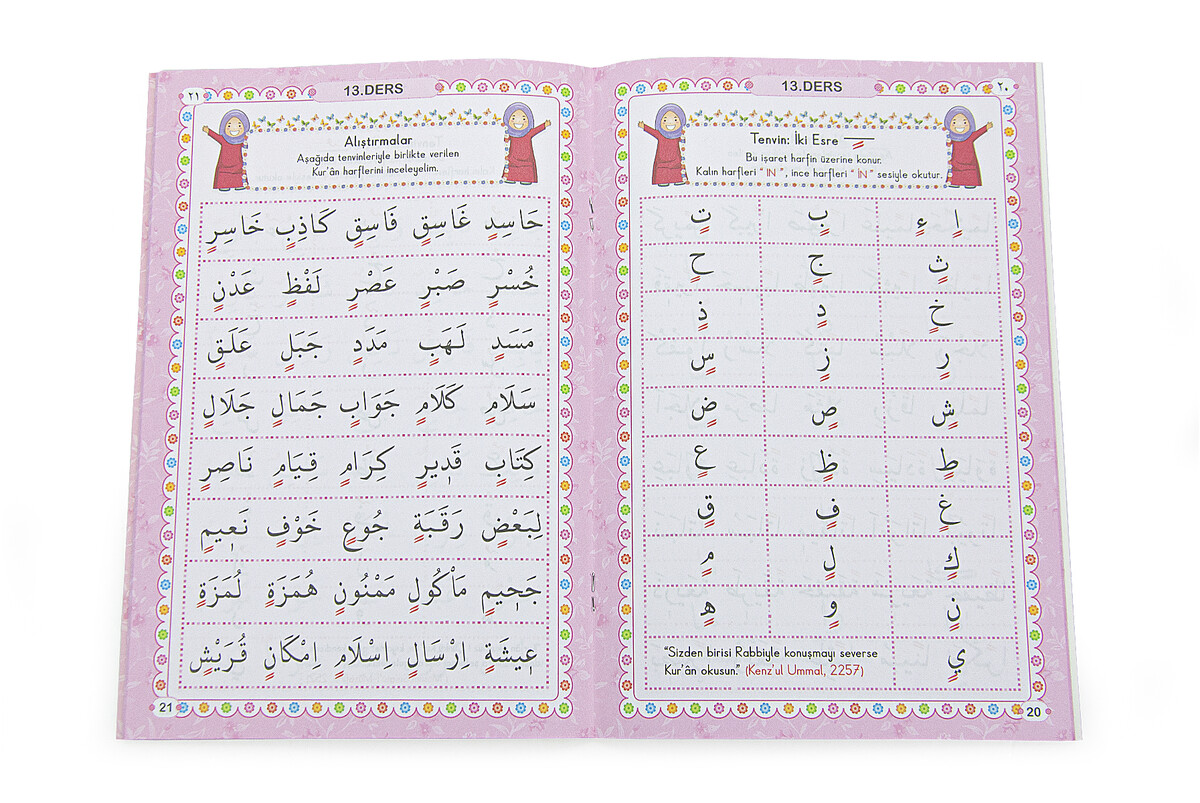 13.DERS
٢٠
Tenvin: İki Esre ـٍـ
Bu işaret harfin üzerine konur.
Kalın harfleri “ IN ”, ince harfleri “ İN ” sesiyle okutur.
اٍ ءٍ بٍ تٍ
ثٍ جٍ حٍ
خٍ دٍ ذٍ
رٍ زٍ سٍ
شٍ صٍ ضٍ
طٍ ظٍ عٍ
غٍ فٍ قٍ
كٍ لٍ مٍ
نٍ وٍ هٍ
يٍ
“Sizden birisi Rabbiyle konuşmayı severse
Kur’ân okusun.” (Kenz’ul Ummal, 2257)
20
13.DERS
٢١
Alıştırmalar
Aşağıda tenvinleriyle birlikte verilen
Kur’ân harflerini inceleyelim.
حَاسِدٍ غَاسِقٍ فَاسِقٍ كَاذِبٍ خَاسِرٍ
خُسْرٍ صَبْرٍ عَصْرٍ لَفْظٍ عَدْنٍ
مَسَدٍ لَهَبٍ مَدَدٍ جَبَلٍ عَلَقٍ
سَلَامٍ كَلَامٍ جَوَابٍ جَمَالٍ جَلَالٍ
كِتَابٍ قَدٖيرٍ كِرَامٍ قِيَامٍ نَاصِرٍ
لِبَعْضٍ رَقَبَةٍ جُوعٍ خَوْفٍ نَعٖيمٍ
جَحٖيمٍ مَأْكُولٍ مَمْنُونٍ هُمَزَةٍ لُمَزَةٍ
عٖيشَةٍ اِرْسَالٍ اِسْلَامٍ اِمْكَانٍ قُرَيْشٍ
21